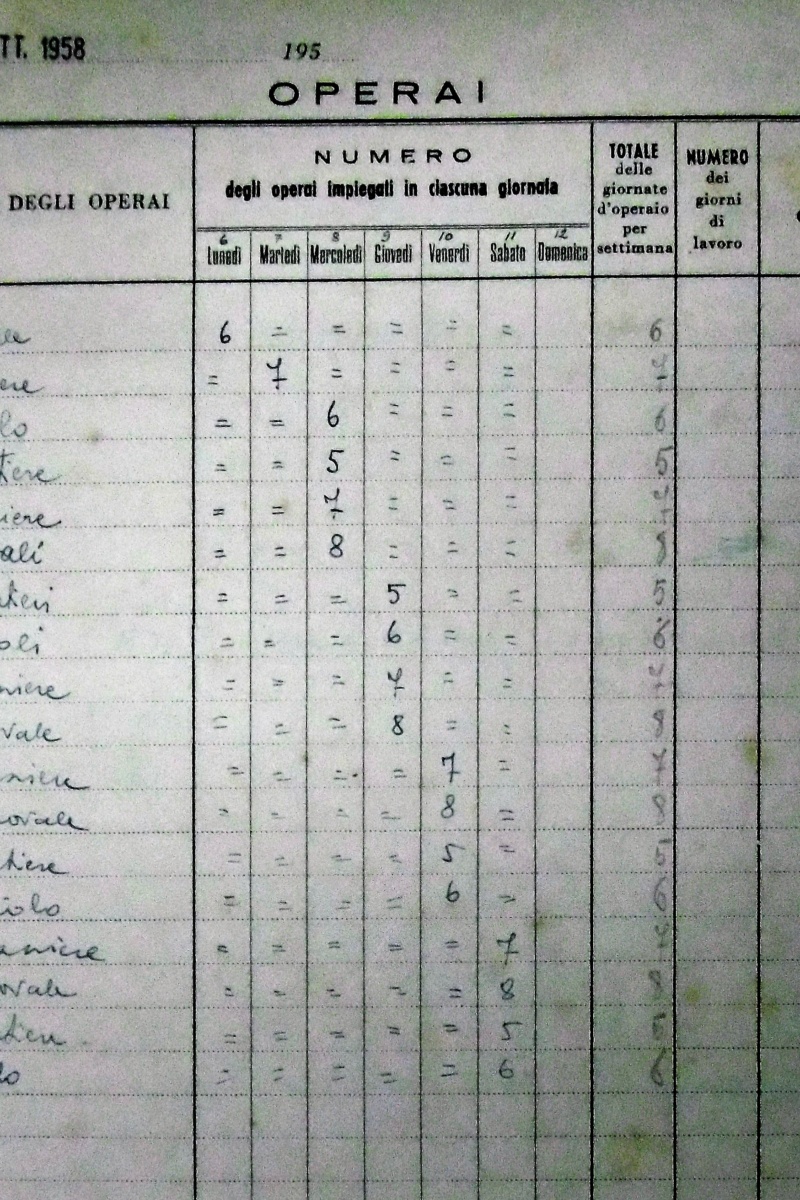 TT. 1958 195
OPERAI
DEGLI OPERAI
NUMERO
degli operai impiegati in ciascuna giornata
6 7 8 9 10 11 12
Lunedì Martedì Mercoledì Giovedì Venerdì Sabato Domenica
TOTALE
delle
giornate
d'operaio
per
settimana
NUMERO
dei
giorni
di
lavoro
6 = = = = = 6
ere = 7 = = = = 7
lo = = 6 = = = 6
tiere = = 5 = = = 5
iere = = 7 = = = 7
ali = = 8 = = = 8
tieri = = = 5 = = 5
oli = = = 6 = = 6
niere = = = 7 = = 7
vale = = = 8 = = 8
niere = = = = 7 = 7
ovale = = = = 8 = 8
tiere = = = = 5 = 5
iolo = = = = 6 = 6
aniere = = = = = 7 7
ovale = = = = = 8 8
= = = = = 5 5
lo = = = = = 6 6